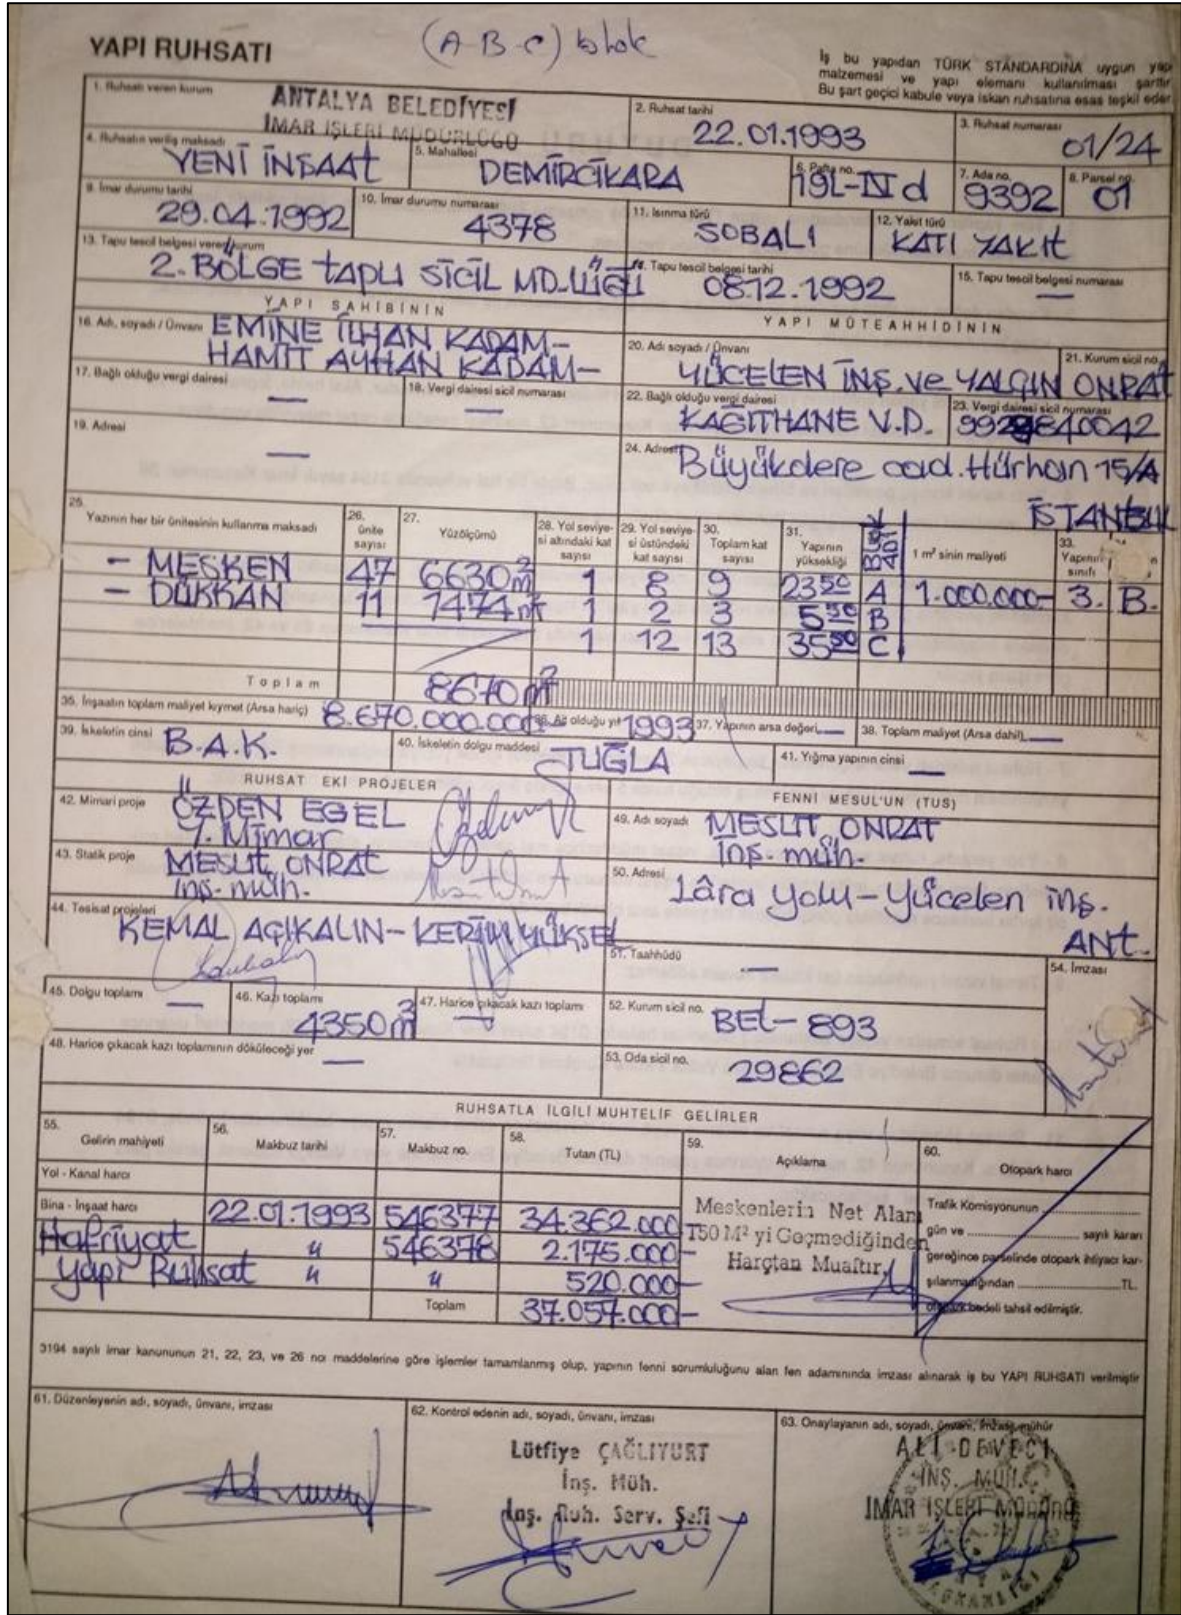 (A-B-C) blok
YAPI RUHSATI
İş bu yapıdan TÜRK STANDARDINA uygun yapı
malzemesi ve yapı elemanı kullanılması şarttır
Bu şart geçici kabule veya iskan ruhsatına esas teşkil eder
1. Ruhsatı veren kurum
ANTALYA BELEDİYESİ
İMAR İŞLERİ MÜDÜRLÜĞÜ
2. Ruhsat tarihi
22.01.1993
3. Ruhsat numarası
01/24
4. Ruhsatın veriliş maksadı
YENİ İNŞAAT
5. Mahallesi
DEMİRCİKARA
6. Pafta no.
19L-IV d
7. Ada no.
9392
8. Parsel no.
01
9. İmar durumu tarihi
29.04.1992
10. İmar durumu numarası
4378
11. Isınma türü
SOBALI
12. Yakıt türü
KATI YAKIt
13. Tapu tescil belgesi veren kurum
2. BÖLGE tAPU SİCİL MD-LÜĞÜ
14. Tapu tescil belgesi tarihi
08.12.1992
15. Tapu tescil belgesi numarası
—
YAPI SAHİBİNİN
YAPI MÜTEAHHİDİNİN
16. Adı, soyadı / Ünvanı
EMİNE İLHAN KADAM-
HAMİT AYHAN KADAM-
20. Adı soyadı / Ünvanı
YÜCELEN İNŞ. ve YALÇIN ONRAT
21. Kurum sicil no.
17. Bağlı olduğu vergi dairesi
—
18. Vergi dairesi sicil numarası
—
22. Bağlı olduğu vergi dairesi
KAĞITHANE V.D.
23. Vergi dairesi sicil numarası
19. Adresi
—
24. Adresi
Büyükdere cad. Hürhan 15/A
İSTANBUL
25. Yazının her bir ünitesinin kullanma maksadı
26. ünite sayısı
27. Yüzölçümü
28. Yol seviyesi altındaki kat sayısı
29. Yol seviyesi üstündeki kat sayısı
30. Toplam kat sayısı
31. Yapının yüksekliği
BLOK ADI
1 m² sinin maliyeti
33. Yapının sınıfı
- MESKEN 47 6630 m² 1 8 9 23.50 A 1.000.000- 3. B.
- DÜKKAN 11 1474 m² 1 2 3 5.50 B
1 12 13 35.50 C
Toplam 8670 m²
35. İnşaatın toplam maliyet kıymet (Arsa hariç)
8.670.000.000-
36. Ait olduğu yıl
1993
37. Yapının arsa değeri —
38. Toplam maliyet (Arsa dahil) —
39. İskeletin cinsi
B.A.K.
40. İskeletin dolgu maddesi
TUĞLA
41. Yığma yapının cinsi
—
RUHSAT EKİ PROJELER
FENNİ MESUL'UN (TUS)
42. Mimari proje
ÖZDEN EGEL
Y. Mimar
49. Adı soyadı
MESUT ONRAT
İnş. müh.
43. Statik proje
MESUT ONRAT
İnş. müh.
50. Adresi
Lâra yolu - Yücelen inş.
ANt.
44. Tesisat projeleri
KEMAL AÇIKALIN - KERİM YÜKSEL
51. Taahhüdü
—
54. İmzası
45. Dolgu toplamı
—
46. Kazı toplamı
4350 m³
47. Harice çıkacak kazı toplamı
—
52. Kurum sicil no.
BEL- 893
48. Harice çıkacak kazı toplamının döküleceği yer
—
53. Oda sicil no.
29862
RUHSATLA İLGİLİ MUHTELİF GELİRLER
55. Gelirin mahiyeti
56. Makbuz tarihi
57. Makbuz no.
58. Tutarı (TL)
59. Açıklama
60. Otopark harcı
Yol - Kanal harcı
Bina - İnşaat harcı 22.01.1993 546377 34.362.000
Hafriyat " 546378 2.175.000-
Yapı Ruhsat " " 520.000-
Toplam 37.057.000-
Meskenlerin Net Alanı
150 M² yi Geçmediğinden
Harçtan Muaftır
Trafik Komisyonunun
gün ve ........ sayılı kararı
gereğince parselinde otopark ihtiyacı kar-
şılanmadığından ........ TL.
otopark bedeli tahsil edilmiştir.
3194 sayılı imar kanununun 21, 22, 23, ve 26 noı maddelerine göre işlemler tamamlanmış olup, yapının fenni sorumluluğunu alan fen adamınında imzası alınarak iş bu YAPI RUHSATI verilmiştir
61. Düzenleyenin adı, soyadı, ünvanı, imzası
62. Kontrol edenin adı, soyadı, ünvanı, imzası
Lütfiye ÇAĞLIYURT
İnş. Müh.
İnş. Ruh. Serv. Şefi
63. Onaylayanın adı, soyadı, ünvanı, imzası, mühür
ALİ DEVECİ
İNŞ. MÜH.
İMAR İŞLERİ MÜDÜRÜ